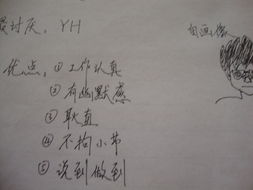 最讨厌。YH
自画像
优点。① 工作认真
② 有幽默感
③ 耿直
④ 不拘小节
⑤ 说到做到